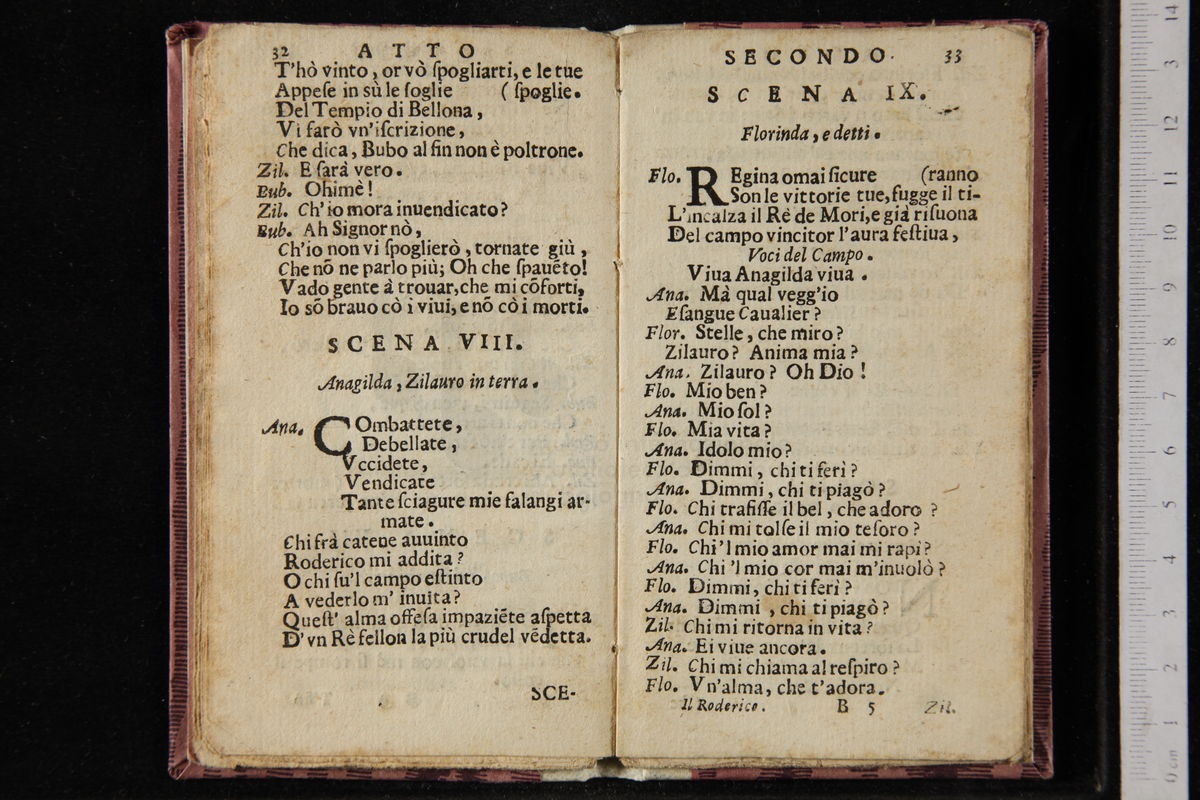 32 ATTO
T'hò vinto, or vò ſpogliarti, e le tue
Appeſe in sù le ſoglie (ſpoglie.
Del Tempio di Bellona,
Vi farò vn'iſcrizione,
Che dica, Bubo al fin non è poltrone.
Zil. E ſarà vero.
Bub. Ohimè!
Zil. Ch'io mora inuendicato?
Bub. Ah Signor nò,
Ch'io non vi ſpoglierò, tornate giù,
Che nõ ne parlo più; Oh che ſpauẽto!
Vado gente à trouar, che mi cõforti,
Io sõ brauo cò i viui, e nõ cò i morti.
SCENA VIII.
Anagilda, Zilauro in terra.
Ana. COmbattete,
Debellate,
Vccidete,
Vendicate
Tante ſciagure mie falangi ar-
mate.
Chi frà catene auuinto
Roderico mi addita?
O chi ſu'l campo eſtinto
A vederlo m' inuita?
Queſt' alma offeſa impaziẽte aſpetta
D'vn Rè fellon la più crudel vẽdetta.
SCE-
SECONDO. 33
SCENA IX.
Florinda, e detti.
Flo. REgina omai ſicure (ranno
Son le vittorie tue, fugge il ti-
L'incalza il Rè de Mori, e già riſuona
Del campo vincitor l'aura feſtiua,
Voci del Campo.
Viua Anagilda viua.
Ana. Mà qual vegg'io
Eſangue Caualier?
Flor. Stelle, che miro?
Zilauro? Anima mia?
Ana. Zilauro? Oh Dio!
Flo. Mio ben?
Ana. Mio ſol?
Flo. Mia vita?
Ana. Idolo mio?
Flo. Dimmi, chi ti ferì?
Ana. Dimmi, chi ti piagò?
Flo. Chi trafiſſe il bel, che adoro?
Ana. Chi mi tolſe il mio teſoro?
Flo. Chi'l mio amor mai mi rapì?
Ana. Chi 'l mio cor mai m'inuolò?
Flo. Dimmi, chi ti ferì?
Ana. Dimmi, chi ti piagò?
Zil. Chi mi ritorna in vita?
Ana. Ei viue ancora.
Zil. Chi mi chiama al reſpiro?
Flo. Vn'alma, che t'adora.
Il Roderico. B 5 Zil.
0 cm 1 2 3 4 5 6 7 8 9 10 11 12 13 14